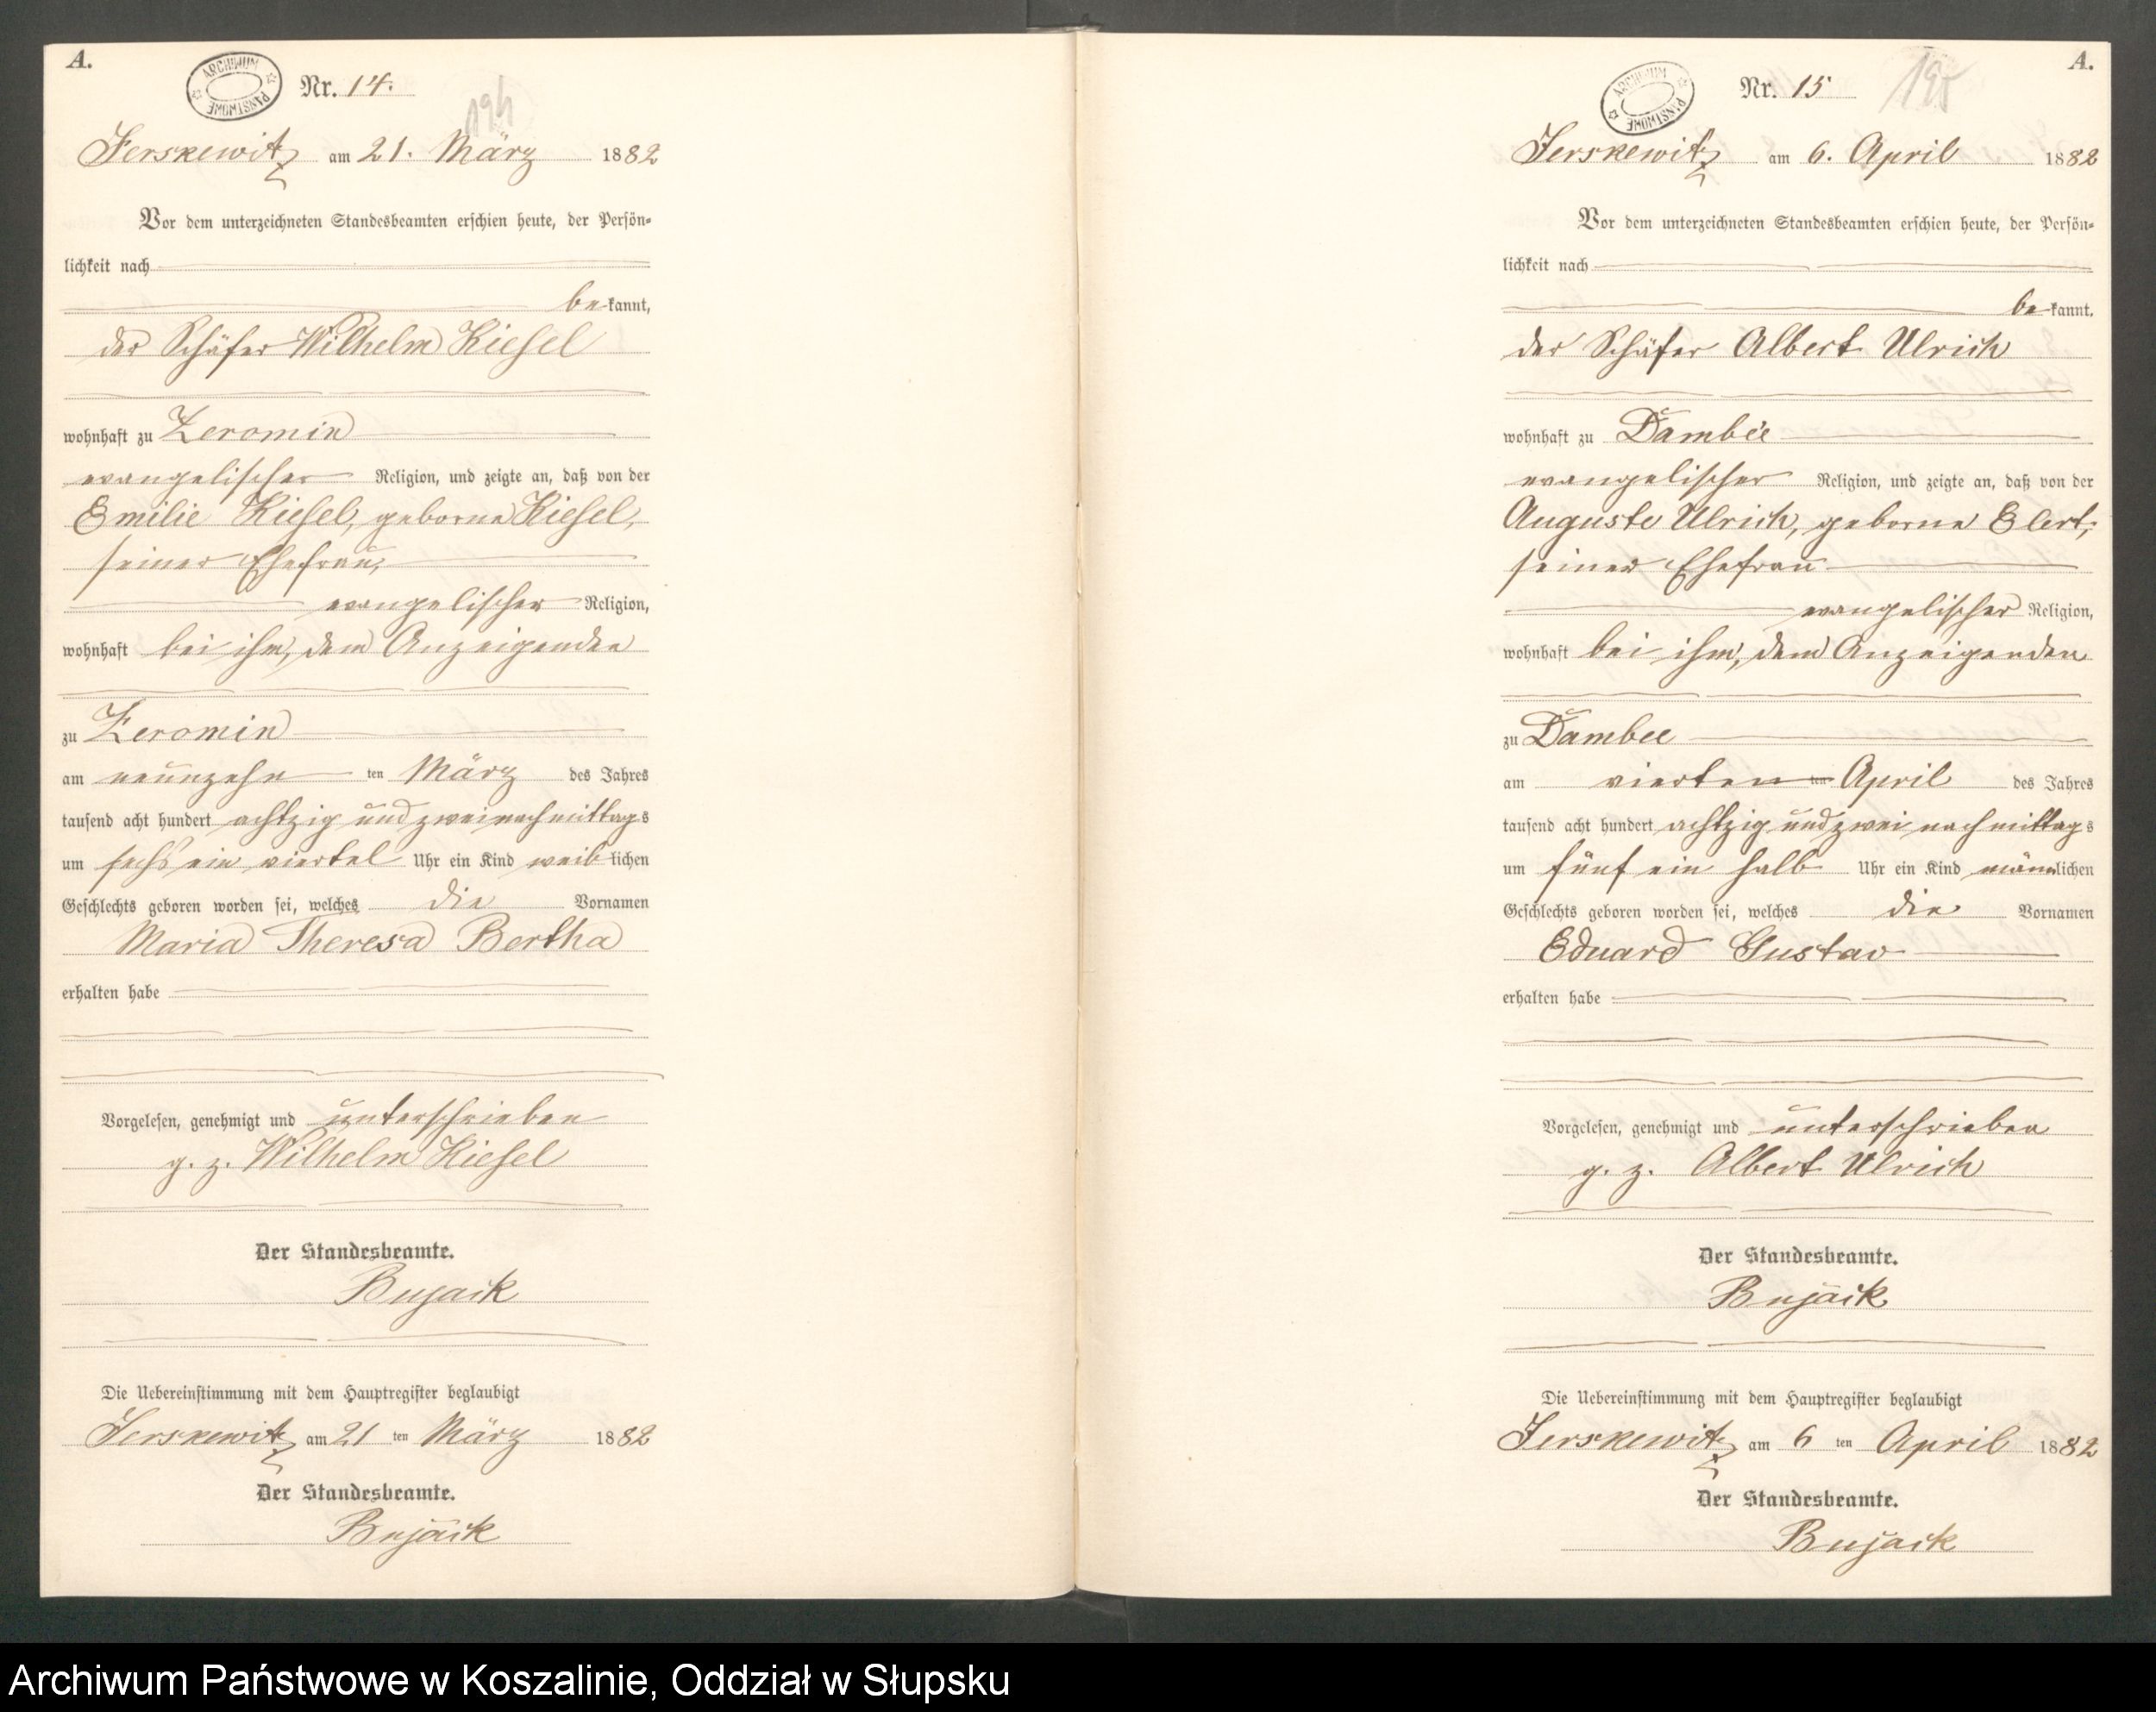 A.
ARCHIWUM PAŃSTWOWE
Nr. 14.
194
Jerskewitz am 21. März 1882
Vor dem unterzeichneten Standesbeamten erschien heute, der Persön-
lichkeit nach
be kannt,
der Schäfer Wilhelm Kiesel
wohnhaft zu Zeromin
evangelischer Religion, und zeigte an, daß von der
Emilie Kiesel, geborne Kiesel,
seiner Ehefrau,
evangelischer Religion,
wohnhaft bei ihm, dem Anzeigenden
zu Zeromin
am neunzehn ten März des Jahres
tausend acht hundert achtzig und zwei nachmittags
um sechs ein viertel Uhr ein Kind weib lichen
Geschlechts geboren worden sei, welches die Vornamen
Maria Theresa Bertha
erhalten habe
Vorgelesen, genehmigt und unterschrieben
g. z. Wilhelm Kiesel
Der Standesbeamte.
Bujack
Die Uebereinstimmung mit dem Hauptregister beglaubigt
Jerskewitz am 21 ten März 1882
Der Standesbeamte.
Bujack
A.
ARCHIWUM PAŃSTWOWE
Nr. 15
195
Jerskewitz am 6. April 1882
Vor dem unterzeichneten Standesbeamten erschien heute, der Persön-
lichkeit nach
be kannt,
der Schäfer Albert Ulrich
wohnhaft zu Dambee
evangelischer Religion, und zeigte an, daß von der
Auguste Ulrich, geborne Elert,
seiner Ehefrau
evangelischer Religion,
wohnhaft bei ihm, dem Anzeigenden
zu Dambee
am vierten ten April des Jahres
tausend acht hundert achtzig und zwei nachmittags
um fünf ein halb Uhr ein Kind männlichen
Geschlechts geboren worden sei, welches die Vornamen
Eduard Gustav
erhalten habe
Vorgelesen, genehmigt und unterschrieben
g. z. Albert Ulrich
Der Standesbeamte.
Bujack
Die Uebereinstimmung mit dem Hauptregister beglaubigt
Jerskewitz am 6 ten April 1882
Der Standesbeamte.
Bujack
Archiwum Państwowe w Koszalinie, Oddział w Słupsku